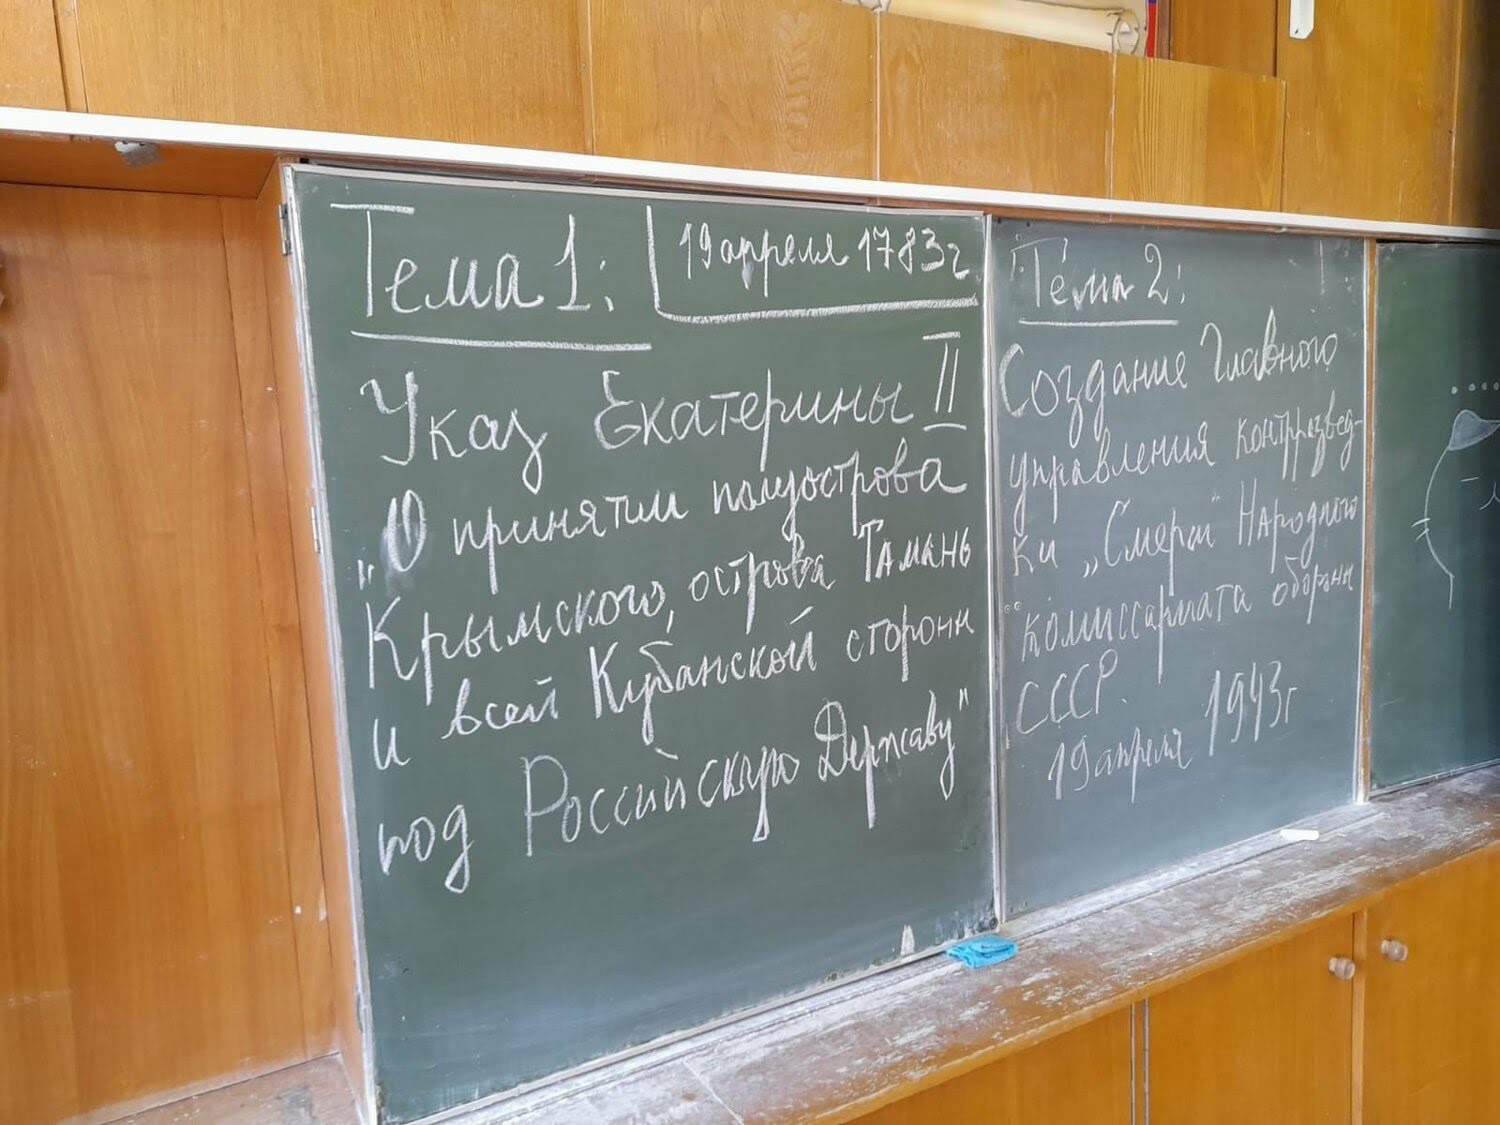 Тема 1:
19 апреля 1783 г
Указ Екатерины II
„О принятии полуострова
Крымского, острова Тамань
и всей Кубанской стороны
под Российскую Державу"
Тема 2:
Создание Главного
управления контрразвед-
ки „Смерш" Народного
комиссариата обороны
СССР.
19 апреля 1943 г